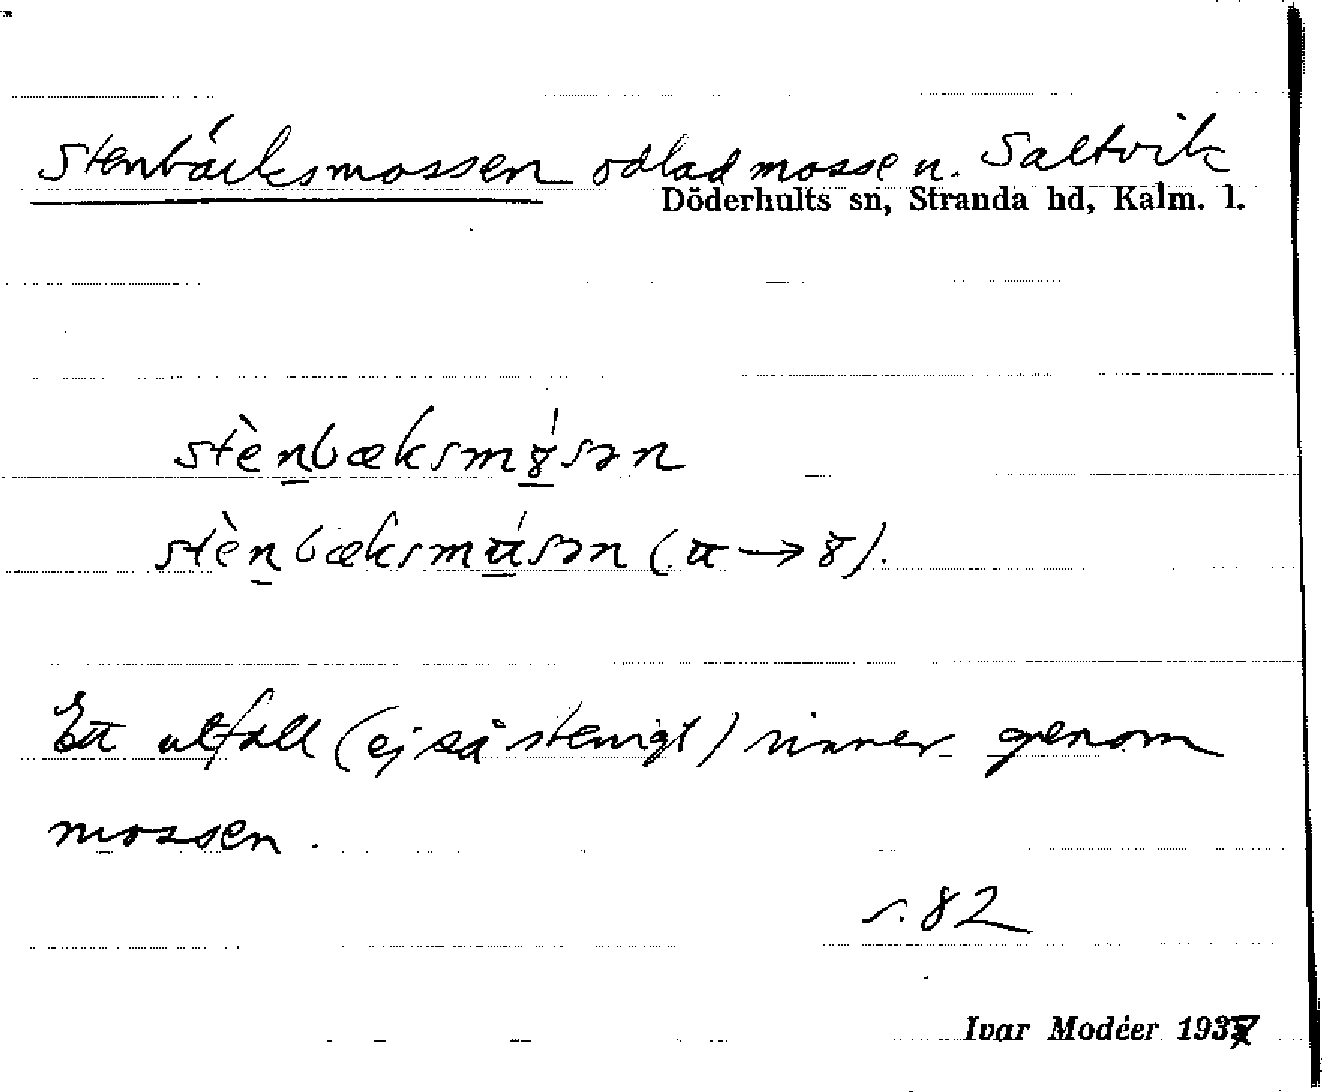 Stenbäcksmossen odlad mosse n. Saltvik
Döderhults sn, Stranda hd, Kalm. l.
stènbæksmɣ́sən
stènbæksmɯ́sən (ɯ → ɣ).
Ett utfall (ej så stenigt) rinner genom
mossen.
s. 82
Ivar Modéer 1937